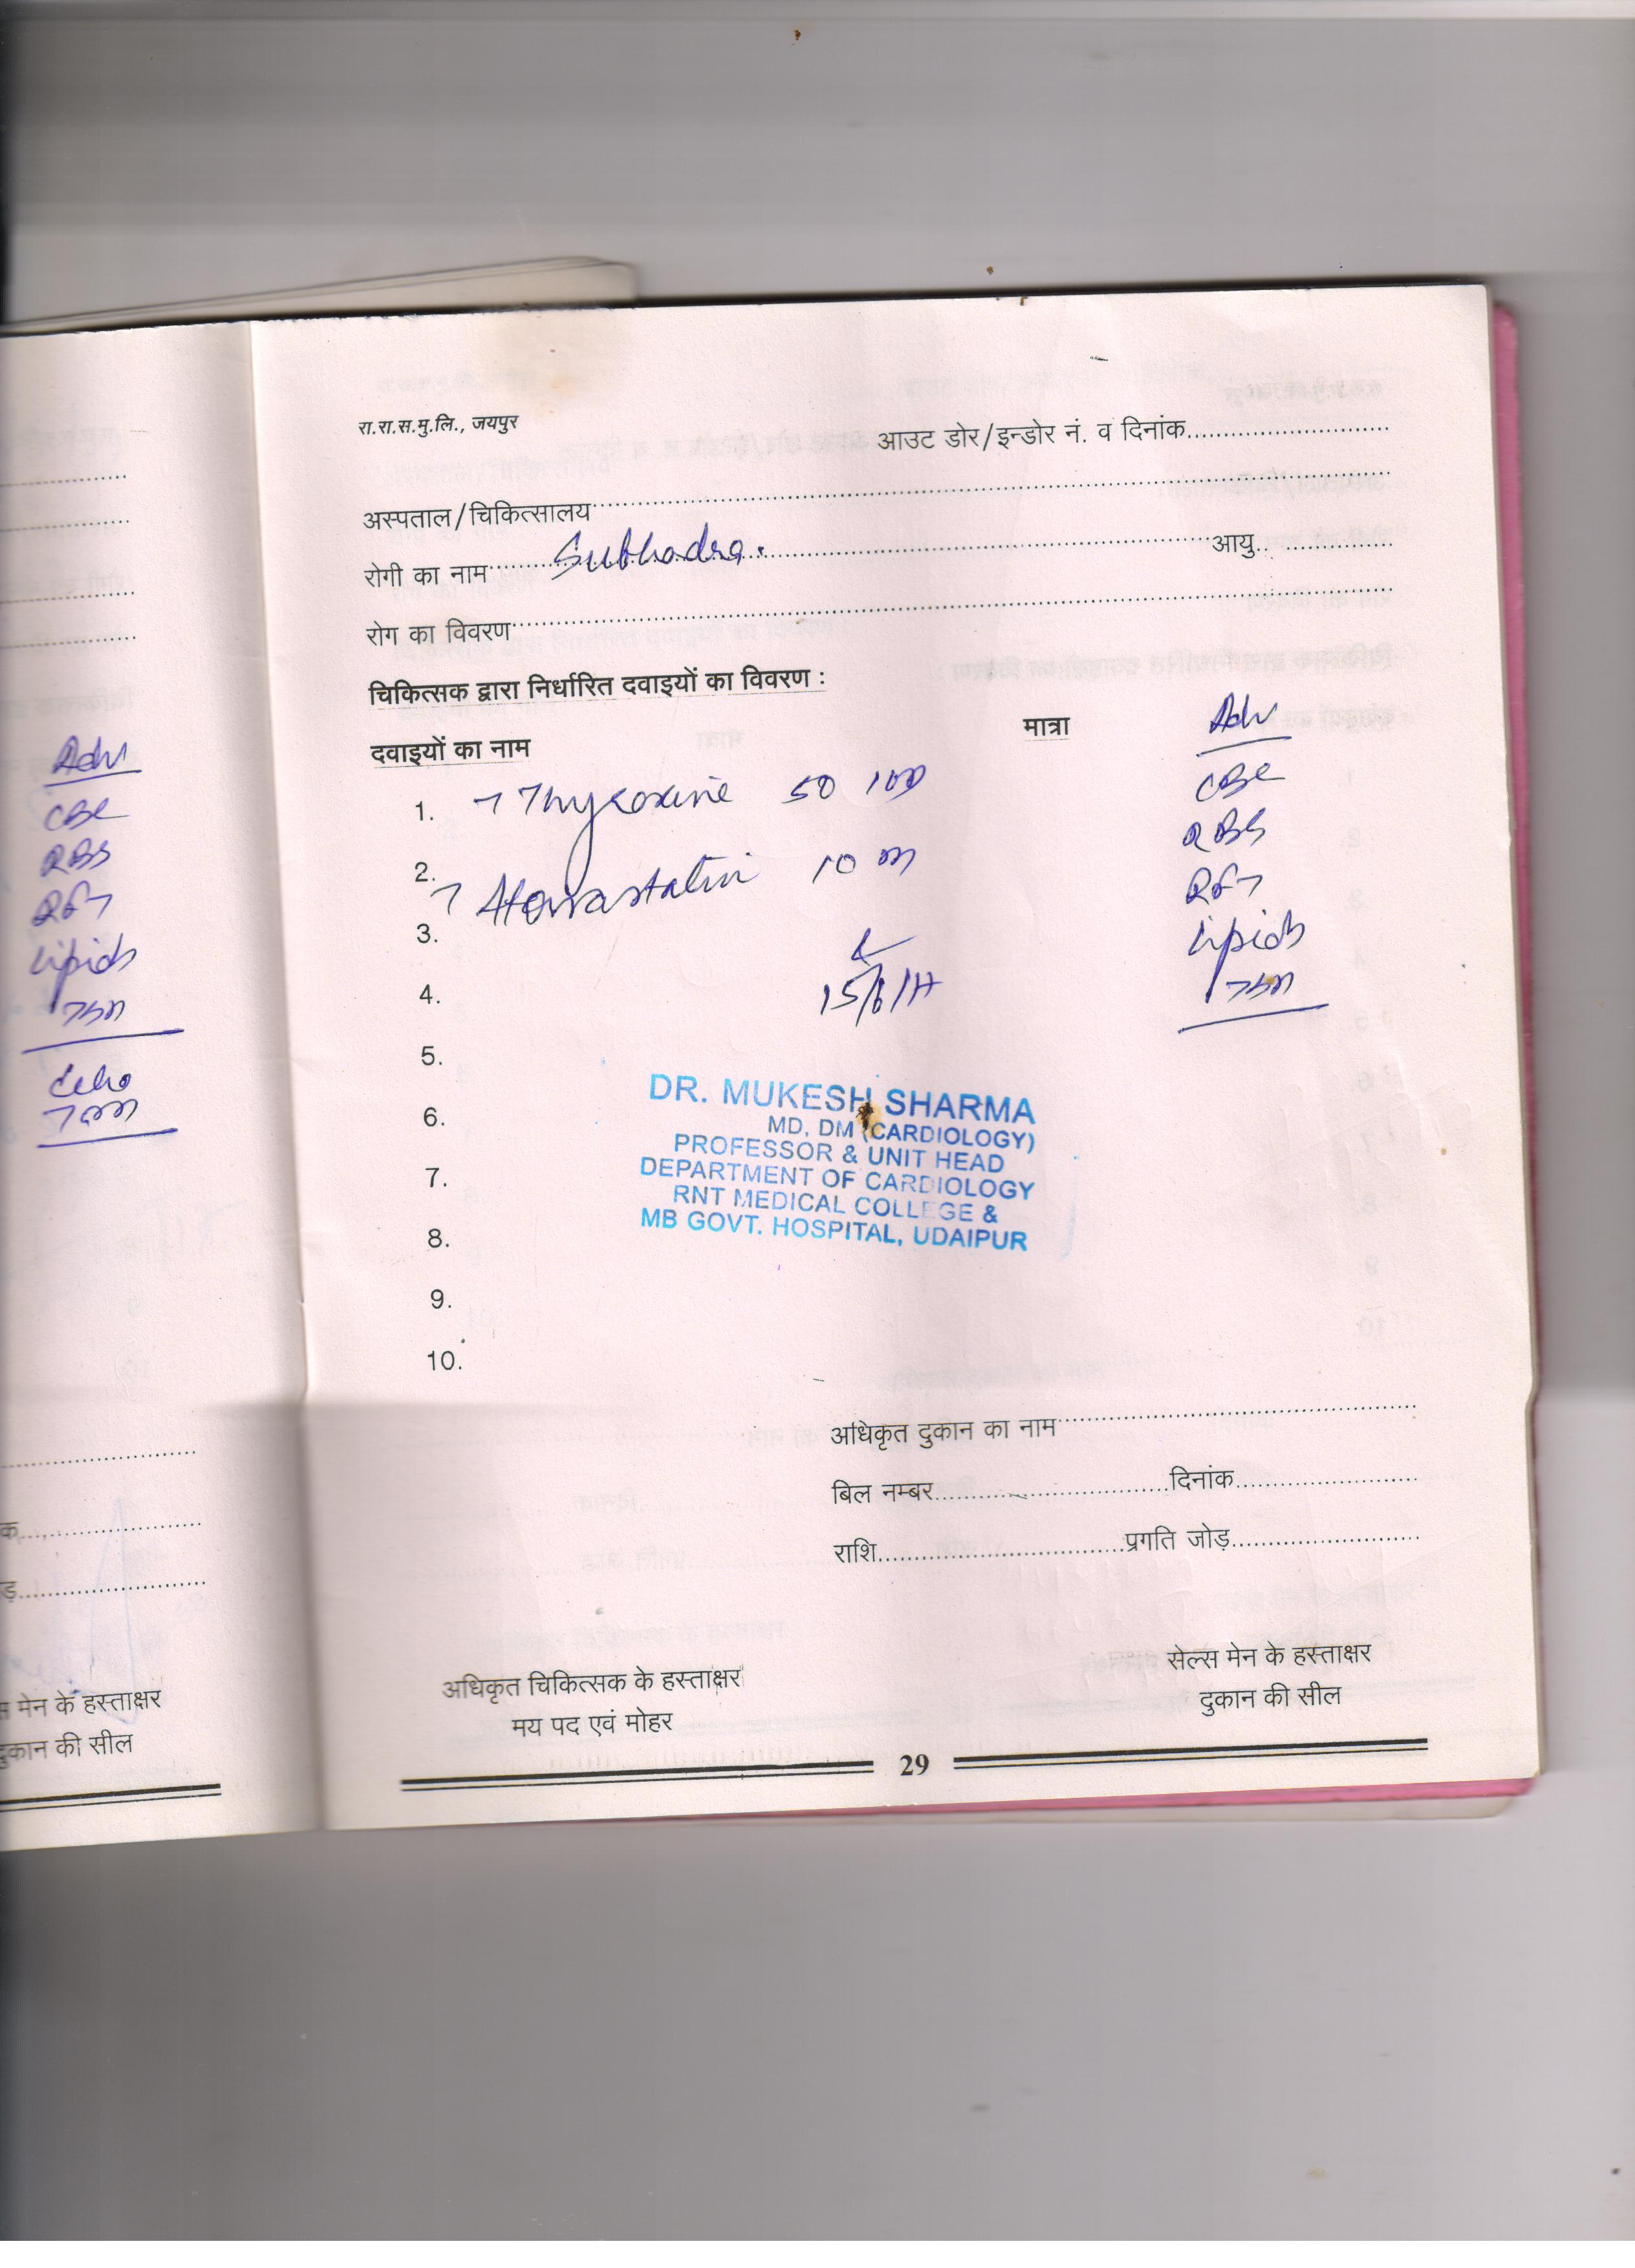 Adv
CBC
RBS
RFT
Lipids
TSH
Echo
TMT
स मेन के हस्ताक्षर
दुकान की सील
रा.रा.स.मु.लि., जयपुर
आउट डोर/इन्डोर नं. व दिनांक
अस्पताल/चिकित्सालय
रोगी का नाम Subhadra. आयु
रोग का विवरण
चिकित्सक द्वारा निर्धारित दवाइयों का विवरण :
दवाइयों का नाम मात्रा Adv
1. T Thyroxine 50 100 CBC
2. T Atorvastatin 10 RBS
3. RFT
4. 15/6/17 Lipids
TSH
5.
6.
7.
8.
9.
10.
DR. MUKESH SHARMA
MD, DM (CARDIOLOGY)
PROFESSOR & UNIT HEAD
DEPARTMENT OF CARDIOLOGY
RNT MEDICAL COLLEGE &
MB GOVT. HOSPITAL, UDAIPUR
अधिकृत दुकान का नाम
बिल नम्बर दिनांक
राशि प्रगति जोड़
अधिकृत चिकित्सक के हस्ताक्षर
मय पद एवं मोहर
सेल्स मेन के हस्ताक्षर
दुकान की सील
29